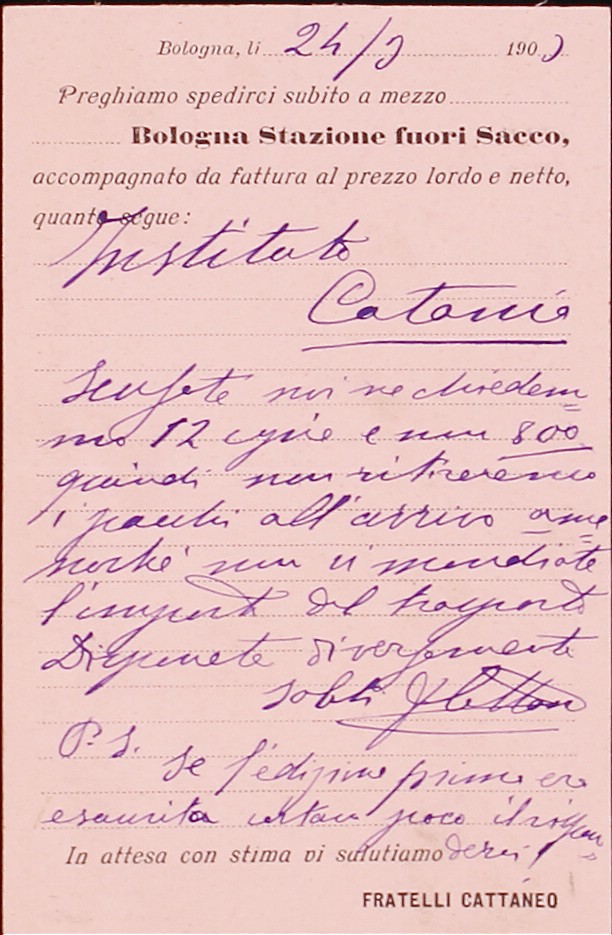 Bologna, li 24/9 1909
Preghiamo spedirci subito a mezzo
Bologna Stazione fuori Sacco,
accompagnato da fattura al prezzo lordo e netto,
quanto segue:
Institato
Catania
Scusate noi ne chiedem
mo 12 copie e non 800
quindi non ritireremo
i pacchi all'arrivo a me
nochè non ci mandiate
l'import del trasporto
Disponete diversamente
P. S.
Se l'edizione prima era
esaurita costava poco il rispon
derci!
In attesa con stima vi salutiamo
FRATELLI CATTANEO